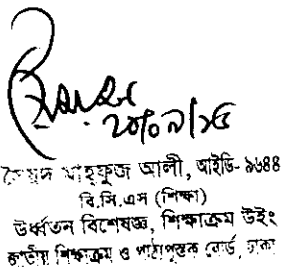 ২০/০৯/১৫
সৈয়দ মাহ্‌ফুজ আলী, আইডি- ১৬৪৪
বি.সি.এস (শিক্ষা)
উর্ধ্বতন বিশেষজ্ঞ, শিক্ষাক্রম উইং
জাতীয় শিক্ষাক্রম ও পাঠ্যপুস্তক বোর্ড, ঢাকা